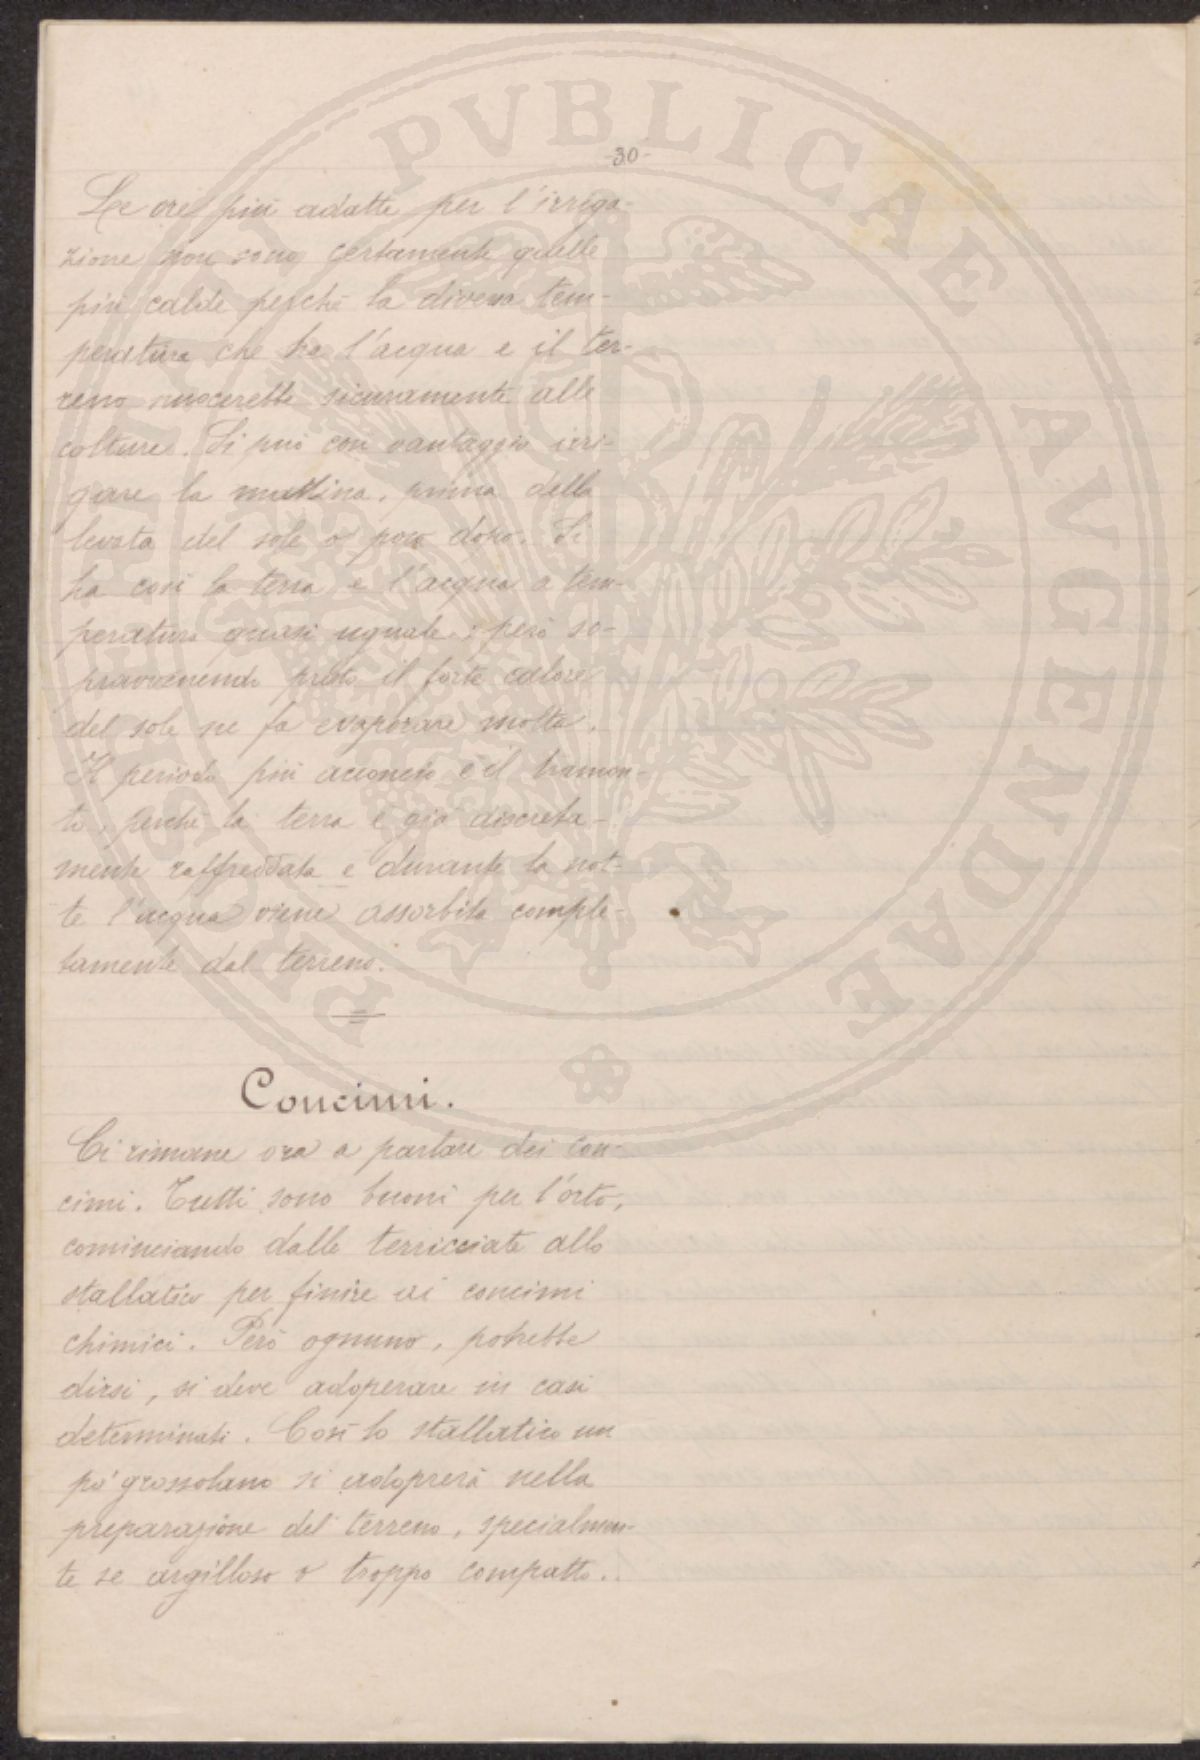 -30-
Le ore più adatte per l'irriga-
zione non sono certamente quelle
più calde perchè la diversa tem-
peratura che ha l'acqua e il ter-
reno nuocerebbe sicuramente alle
colture. Si può con vantaggio irri-
gare la mattina, prima della
levata del sole o poco dopo. Si
ha così la terra e l'acqua a tem-
peratura quasi uguale; però so-
pravvenendo presto il forte calore
del sole ne fa evaporare molta.
Il periodo più acconcio è il tramon-
to, perchè la terra è già discreta-
mente raffreddata e durante la not-
te l'acqua viene assorbita comple-
tamente dal terreno.
Concimi.
Ci rimane ora a parlare dei con-
cimi. Tutti sono buoni per l'orto,
cominciando dalle terricciate allo
stallatico per finire ai concimi
chimici. Però ognuno, potrebbe
dirsi, si deve adoperare in casi
determinati. Così lo stallatico un
pò grossolano si adoprerà nella
preparazione del terreno, specialmen-
te se argilloso o troppo compatto.
PROSPERITATI PVBLICAE AVGENDAE